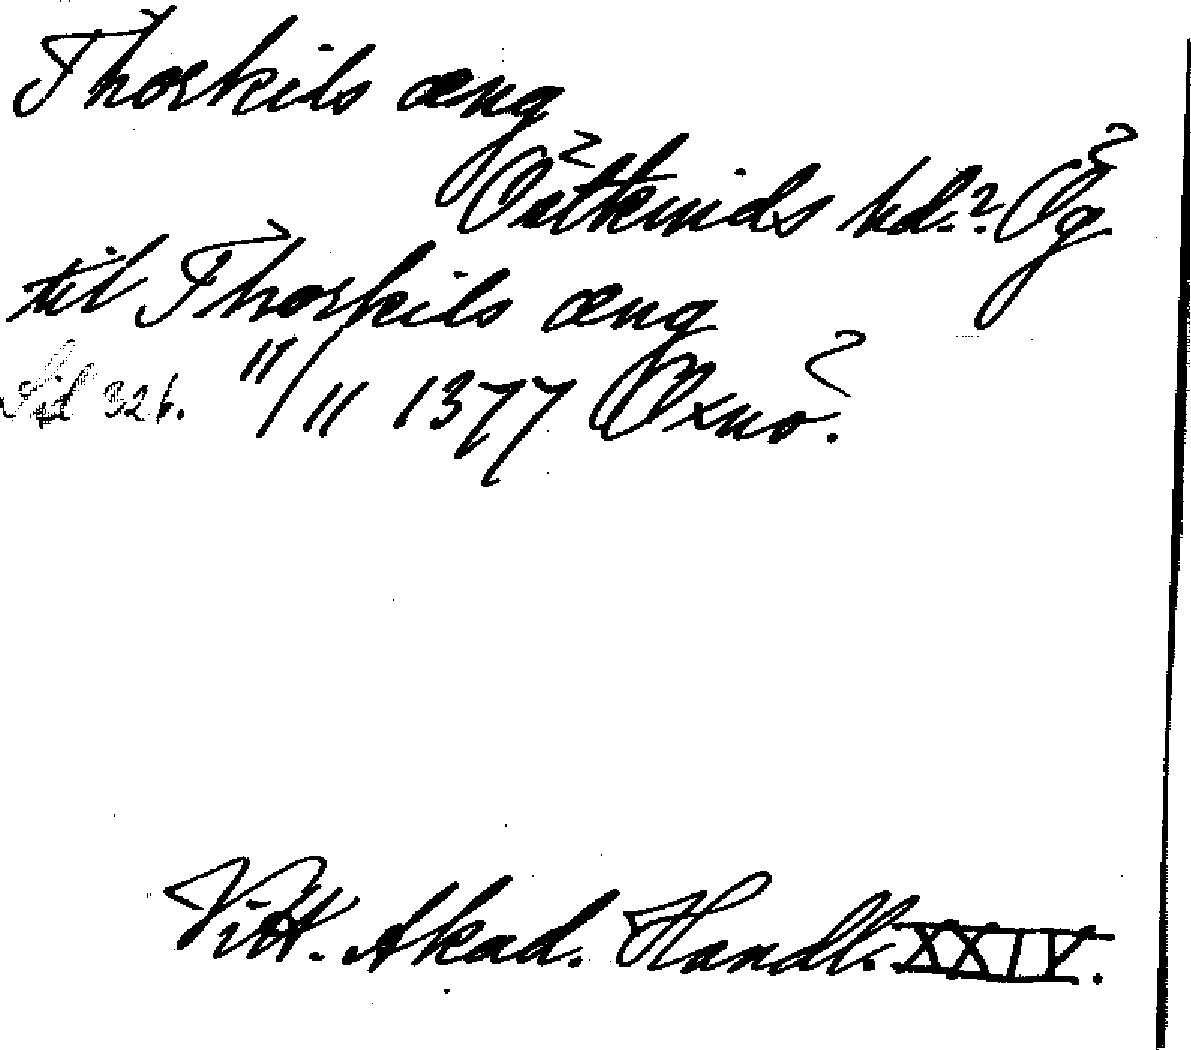 Thorkils æng
Östkinds hd.? Ög
til Thorkils æng
Sid 326. 11/11 1377 Öxnö.
Vitt. Akad. Handl. XXIV.